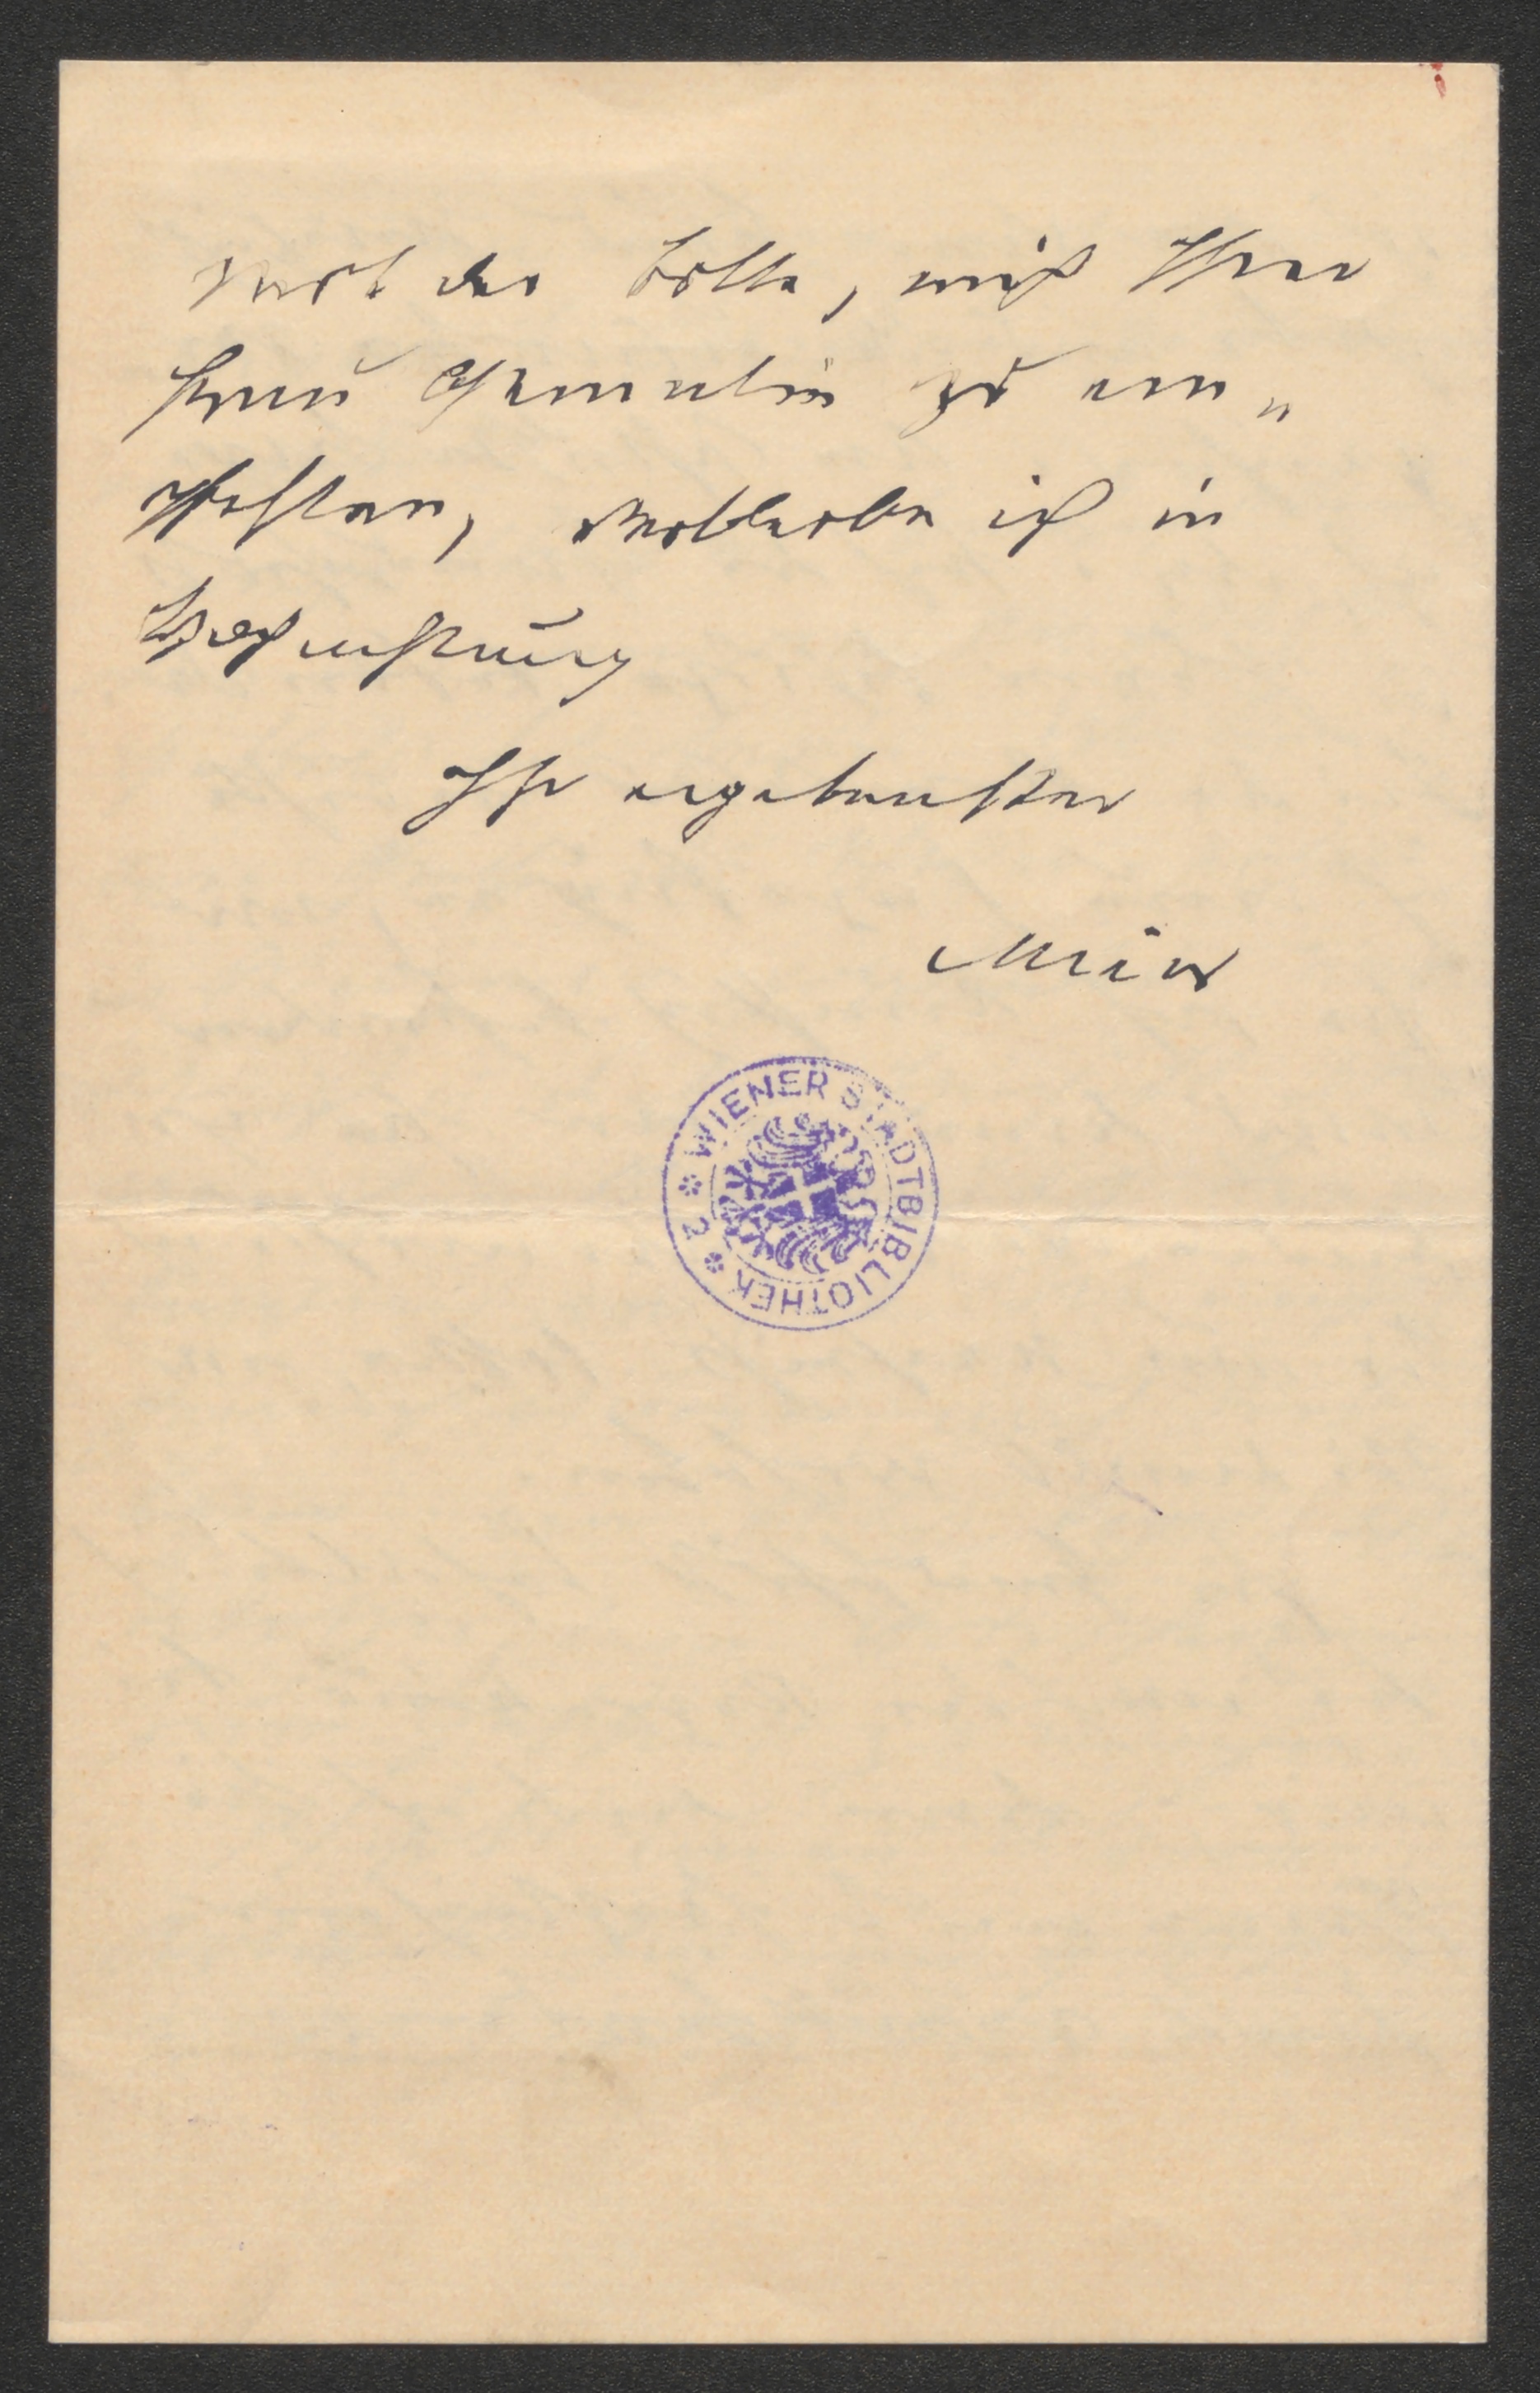 Mit der Bitte, mich Ihrer
Frau Gemalin zu em„
pfehlen, verbleibe ich in
Hochachtung
Ihr ergebenster
Minor
WIENER STADTBIBLIOTHEK * 2 *